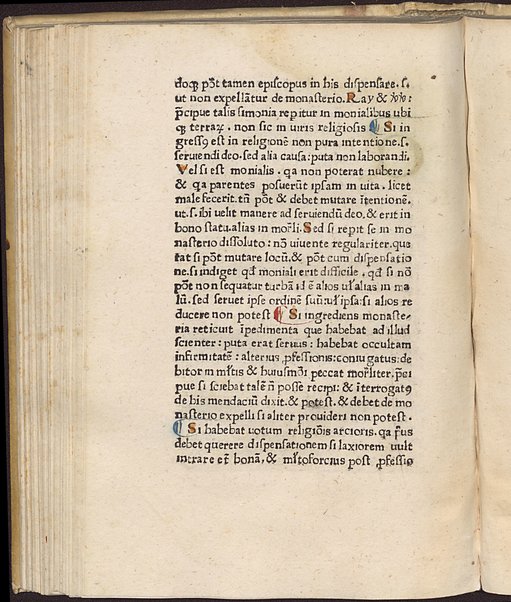 doq̃ pōt tamen episcopus in his dispensare. s.
ut non expellãtur de monasterio. Ray &
p̃cipue talis simonia repitur in monialibus ubi
q̃ terraꝝ. non sic in uiris religiosis ¶ Si in
gressꝰ est in religionē non pura intentione. s.
seruiendi deo. sed alia causa: puta non laborandi.
Vel si est monialis. qa non poterat nubere:
& qa parentes posuerūt ipsam in uita. licet
male fecerit. tñ pōt & debet mutare ĩtentionẽ.
ut. s. ibi uelit manere ad seruiendũ deo. & erit in
bono statu. alias in mor̃li. Sed si repit se in mo
nasterio dissoluto: nō uiuente regulariter. que
rat si pōt mutare locũ. & pōt cum dispensatio
ne. si indiget qđ moniali erit difficile. qđ si nō
pōt non sequatur turbã id ẽ alios uł alias in ma
lũ. sed seruet ipse ordinẽ suũ: uł ipsa: si alios re
ducere non potest ¶ Si ingrediens monaste⸗
ria reticuit ĩpedimenta que habebat ad illud
scienter: puta erat seruus: habebat occultam
infirmitatẽ: alterius ꝓfessionis: coniugatus: de
bitor in młtis & huiusmōi peccat mor̃liter. p̃ci
pue si sciebat talẽ ñ posse recipi: & ĩterrogatꝰ
de his mendaciũ dixit. & potest. & debet de mo
nasterio expelli si aliter prouideri non potest.
¶ Si habebat uotum religiōis arctioris. qa p̃us
debet querere dispensationem si laxiorem uult
intrare et̃ bonã, & młtofortius post ꝓfessio